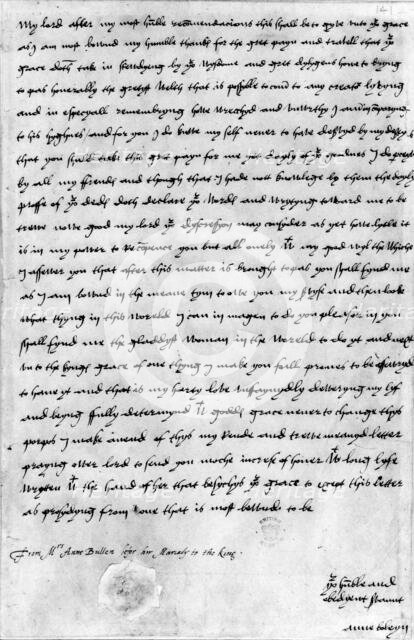 My lord after my most humble recomendacions this shall be to gyve unto yor grace
as I am most bownd my humble thanks for the gret payn and travell that yor
grace doth take in steudyeng by yor wysdome and gret dylygens howe to bryng
to pas honerably the gretyst welth that is possyble to com to any creator lyvyng
and in especyall remembryng howe wrecchyd and unwrthy I am in comparyng
to his hyghnes and for you I do knowe my self never to have deservyd by my deserts
that you shuld take this gret payn for me yet dayly of yor goodnes I do perceyve
by all my ffrends and though that I hade not knowlege by them the dayly
proffe of yor deds doth declare yor words and wrytyng toward me to be
trewe nowe good my lord yor dyscressyon may consyder as yet howe lytle it
is in my power to recompence you but all onely wt my good wyl the whiche
I assewer you that after this matter is brought to pas you shall fynd me
as I am bownd in the meane tym to owe you my servyse and then looke
what thyng in this woreld I can inmagen to do you pleasor in you
shall fynd me the gladdyst woman in the woreld to do yt and next
unto the kyngs grace of one thyng I make you full promes to be assewryd
to have yt and that is my harty love unffaynydly dewering my lyf
and beyng ffully determynd wt goddes grace never to change thys
porpos I make anend of thys my reude and trewe meanyd letter
prayng ower lord to send you moche increse of honer wt long lyfe
wrytten wt the hand of her that besychys yor grace to except this letter
as prosydyng from one that is most bownde to be
From Mrs Anne Bullen before her Mariage to the King
yor humble and
obedyent servant
anne boleyn